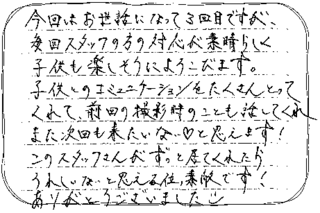 今回はお世話になって3回目ですが、
毎回スタッフの方の対応が素晴らしく
子供も楽しそうによろこびます。
子供とのコミュニケーションをたくさんとって
くれて、前回の撮影時のことも話してくれ
また次回も来たいな♡と思えます!
このスタッフさんがずっと居てくれたら
うれしいな と思える位、素敵です!
ありがとうございました